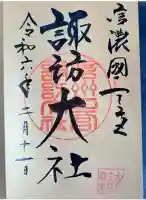 信濃國一之宮
諏訪大社
令和六年二月十一日